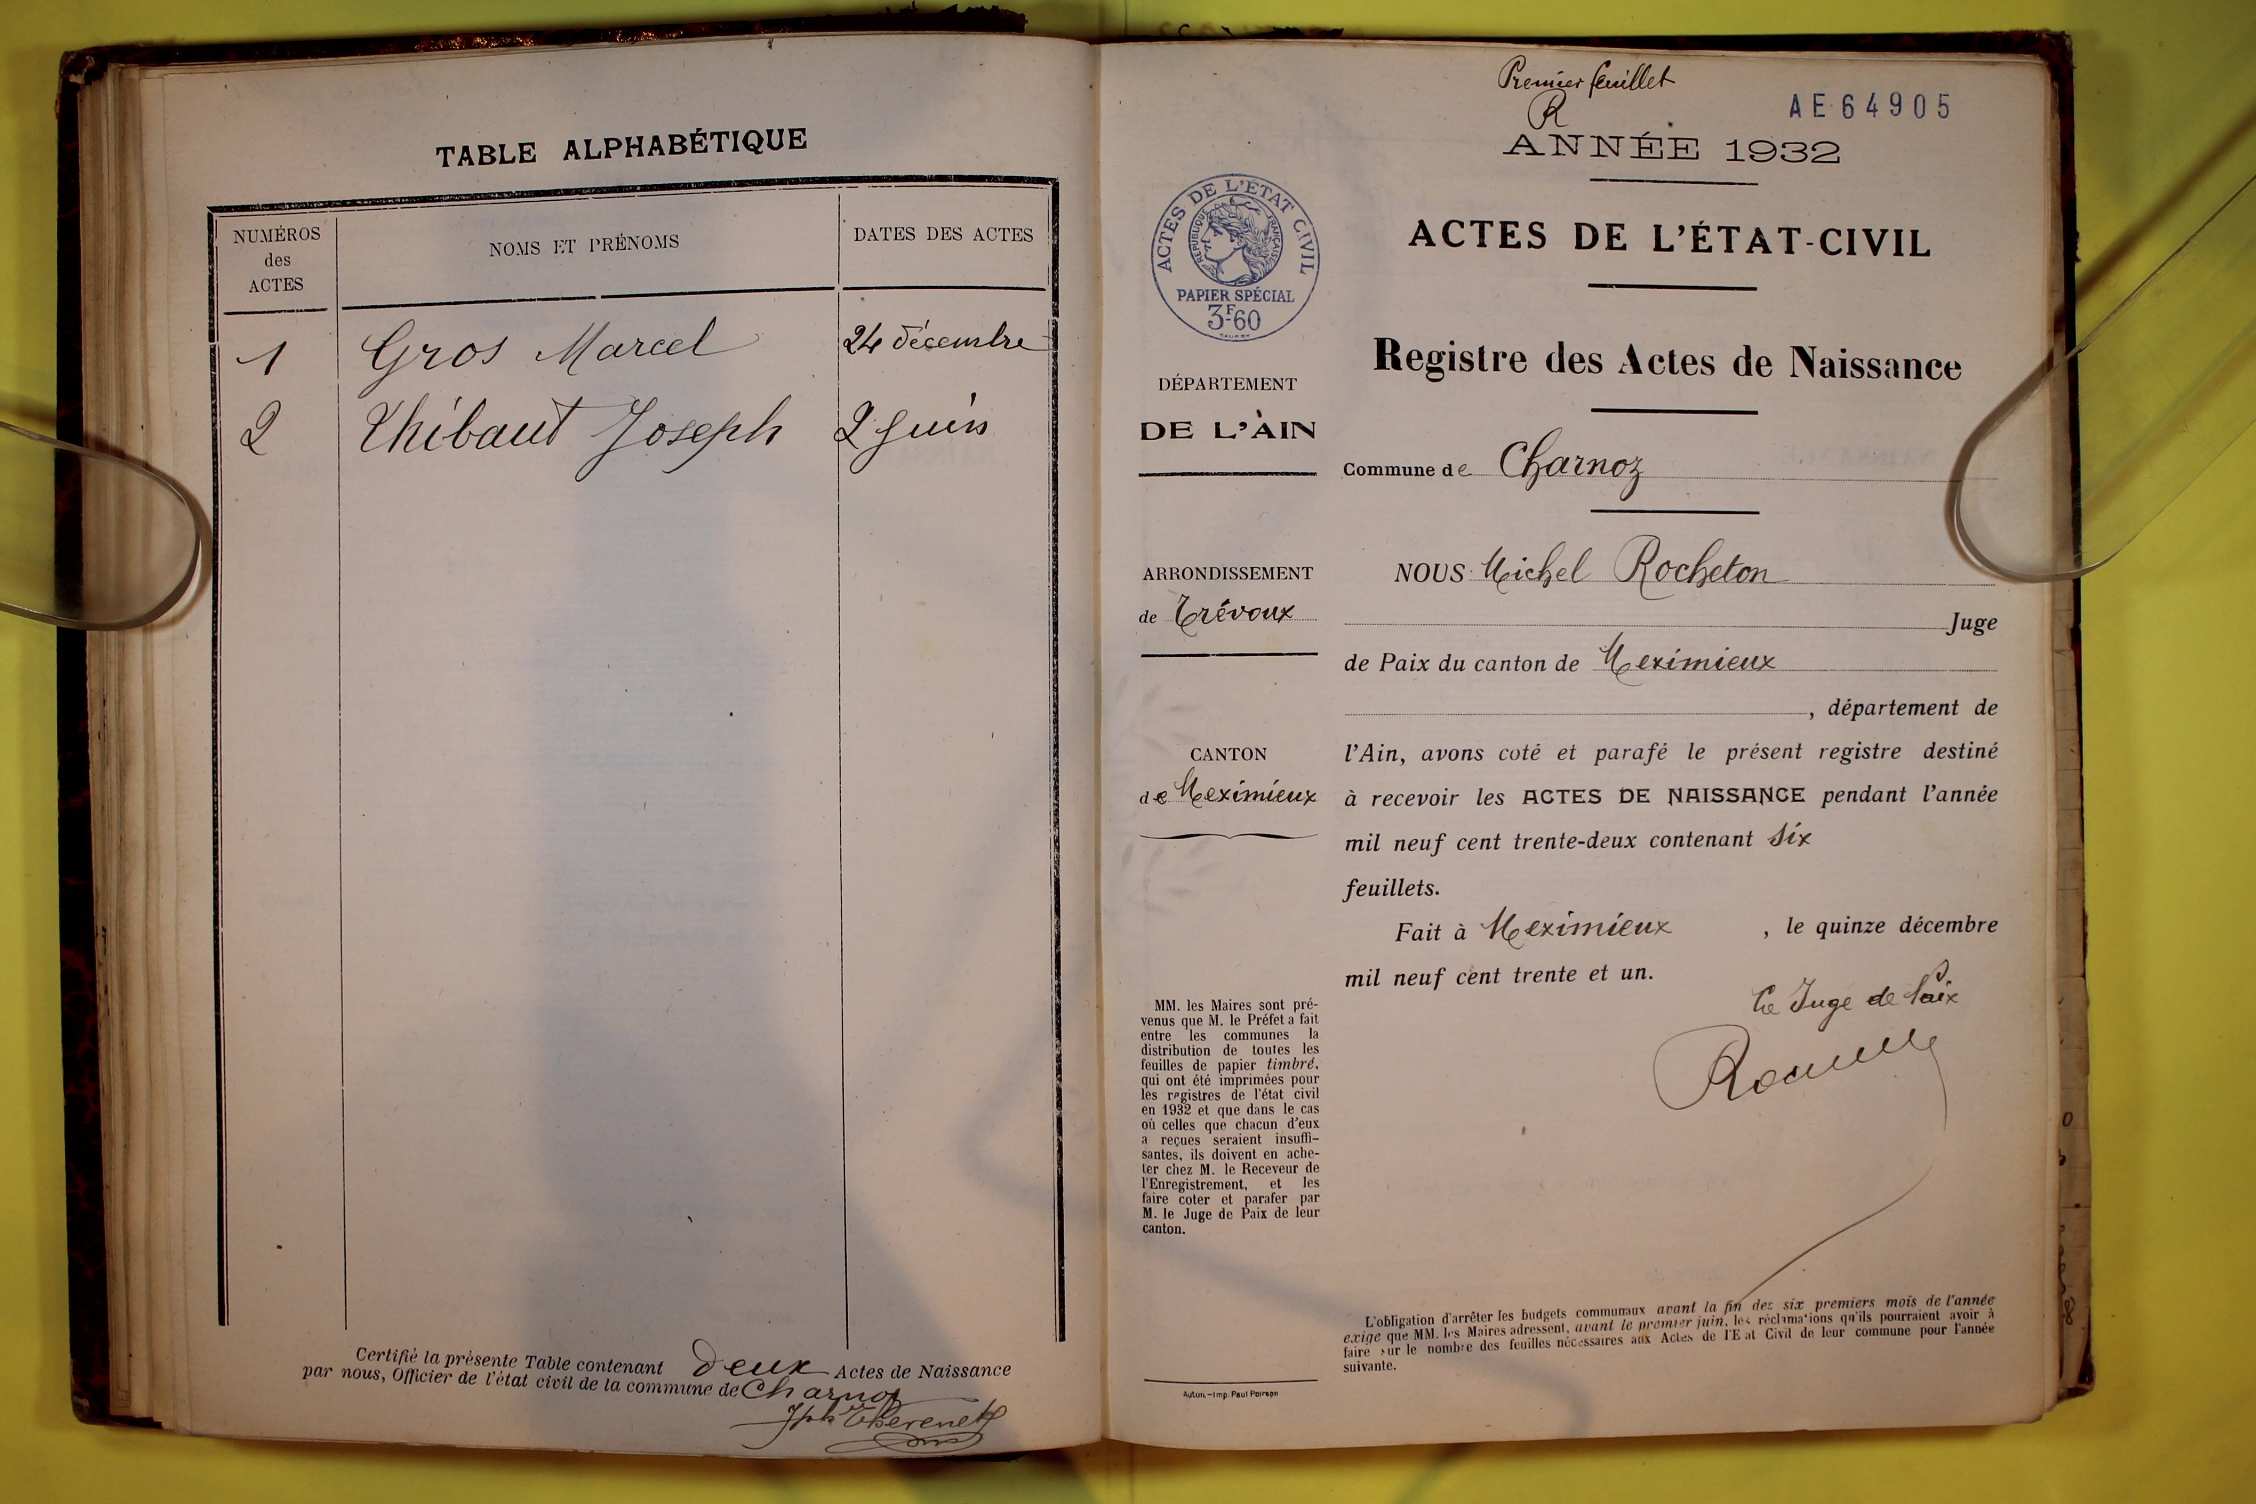 TABLE ALPHABÉTIQUE
NUMÉROS
des
ACTES
NOMS ET PRÉNOMS
DATES DES ACTES
1 Gros Marcel 24 décembre
2 Thibaut Joseph 2 juin
Certifié la présente Table contenant deux Actes de Naissance
par nous, Officier de l'état civil de la commune de Charnoz
Premier feuillet
R
AE 64905
ANNÉE 1932
ACTES DE L'ÉTAT CIVIL
RÉPUBLIQUE FRANÇAISE
PAPIER SPÉCIAL
3F.60
DÉPARTEMENT
DE L'AIN
ARRONDISSEMENT
de Trévoux
CANTON
de Meximieux
MM. les Maires sont pré-
venus que M. le Préfet a fait
entre les communes la
distribution de toutes les
feuilles de papier timbré,
qui ont été imprimées pour
les registres de l'état civil
en 1932 et que dans le cas
où celles que chacun d'eux
a reçues seraient insuffi-
santes, ils doivent en ache-
ter chez M. le Receveur de
l'Enregistrement, et les
faire coter et parafer par
M. le Juge de Paix de leur
canton.
Autun.-Imp. Paul Poirson
ACTES DE L'ÉTAT-CIVIL
Registre des Actes de Naissance
Commune de Charnoz
NOUS Michel Rocheton
Juge
de Paix du canton de Meximieux
, département de
l'Ain, avons coté et parafé le présent registre destiné
à recevoir les ACTES DE NAISSANCE pendant l'année
mil neuf cent trente-deux contenant six
feuillets.
Fait à Meximieux , le quinze décembre
mil neuf cent trente et un.
Le Juge de Paix
L'obligation d'arrêter les budgets communaux avant la fin des six premiers mois de l'année
exige que MM. les Maires adressent, avant le premier juin, les réclamations qu'ils pourraient avoir à
faire sur le nombre des feuilles nécessaires aux Actes de l'Etat Civil de leur commune pour l'année
suivante.